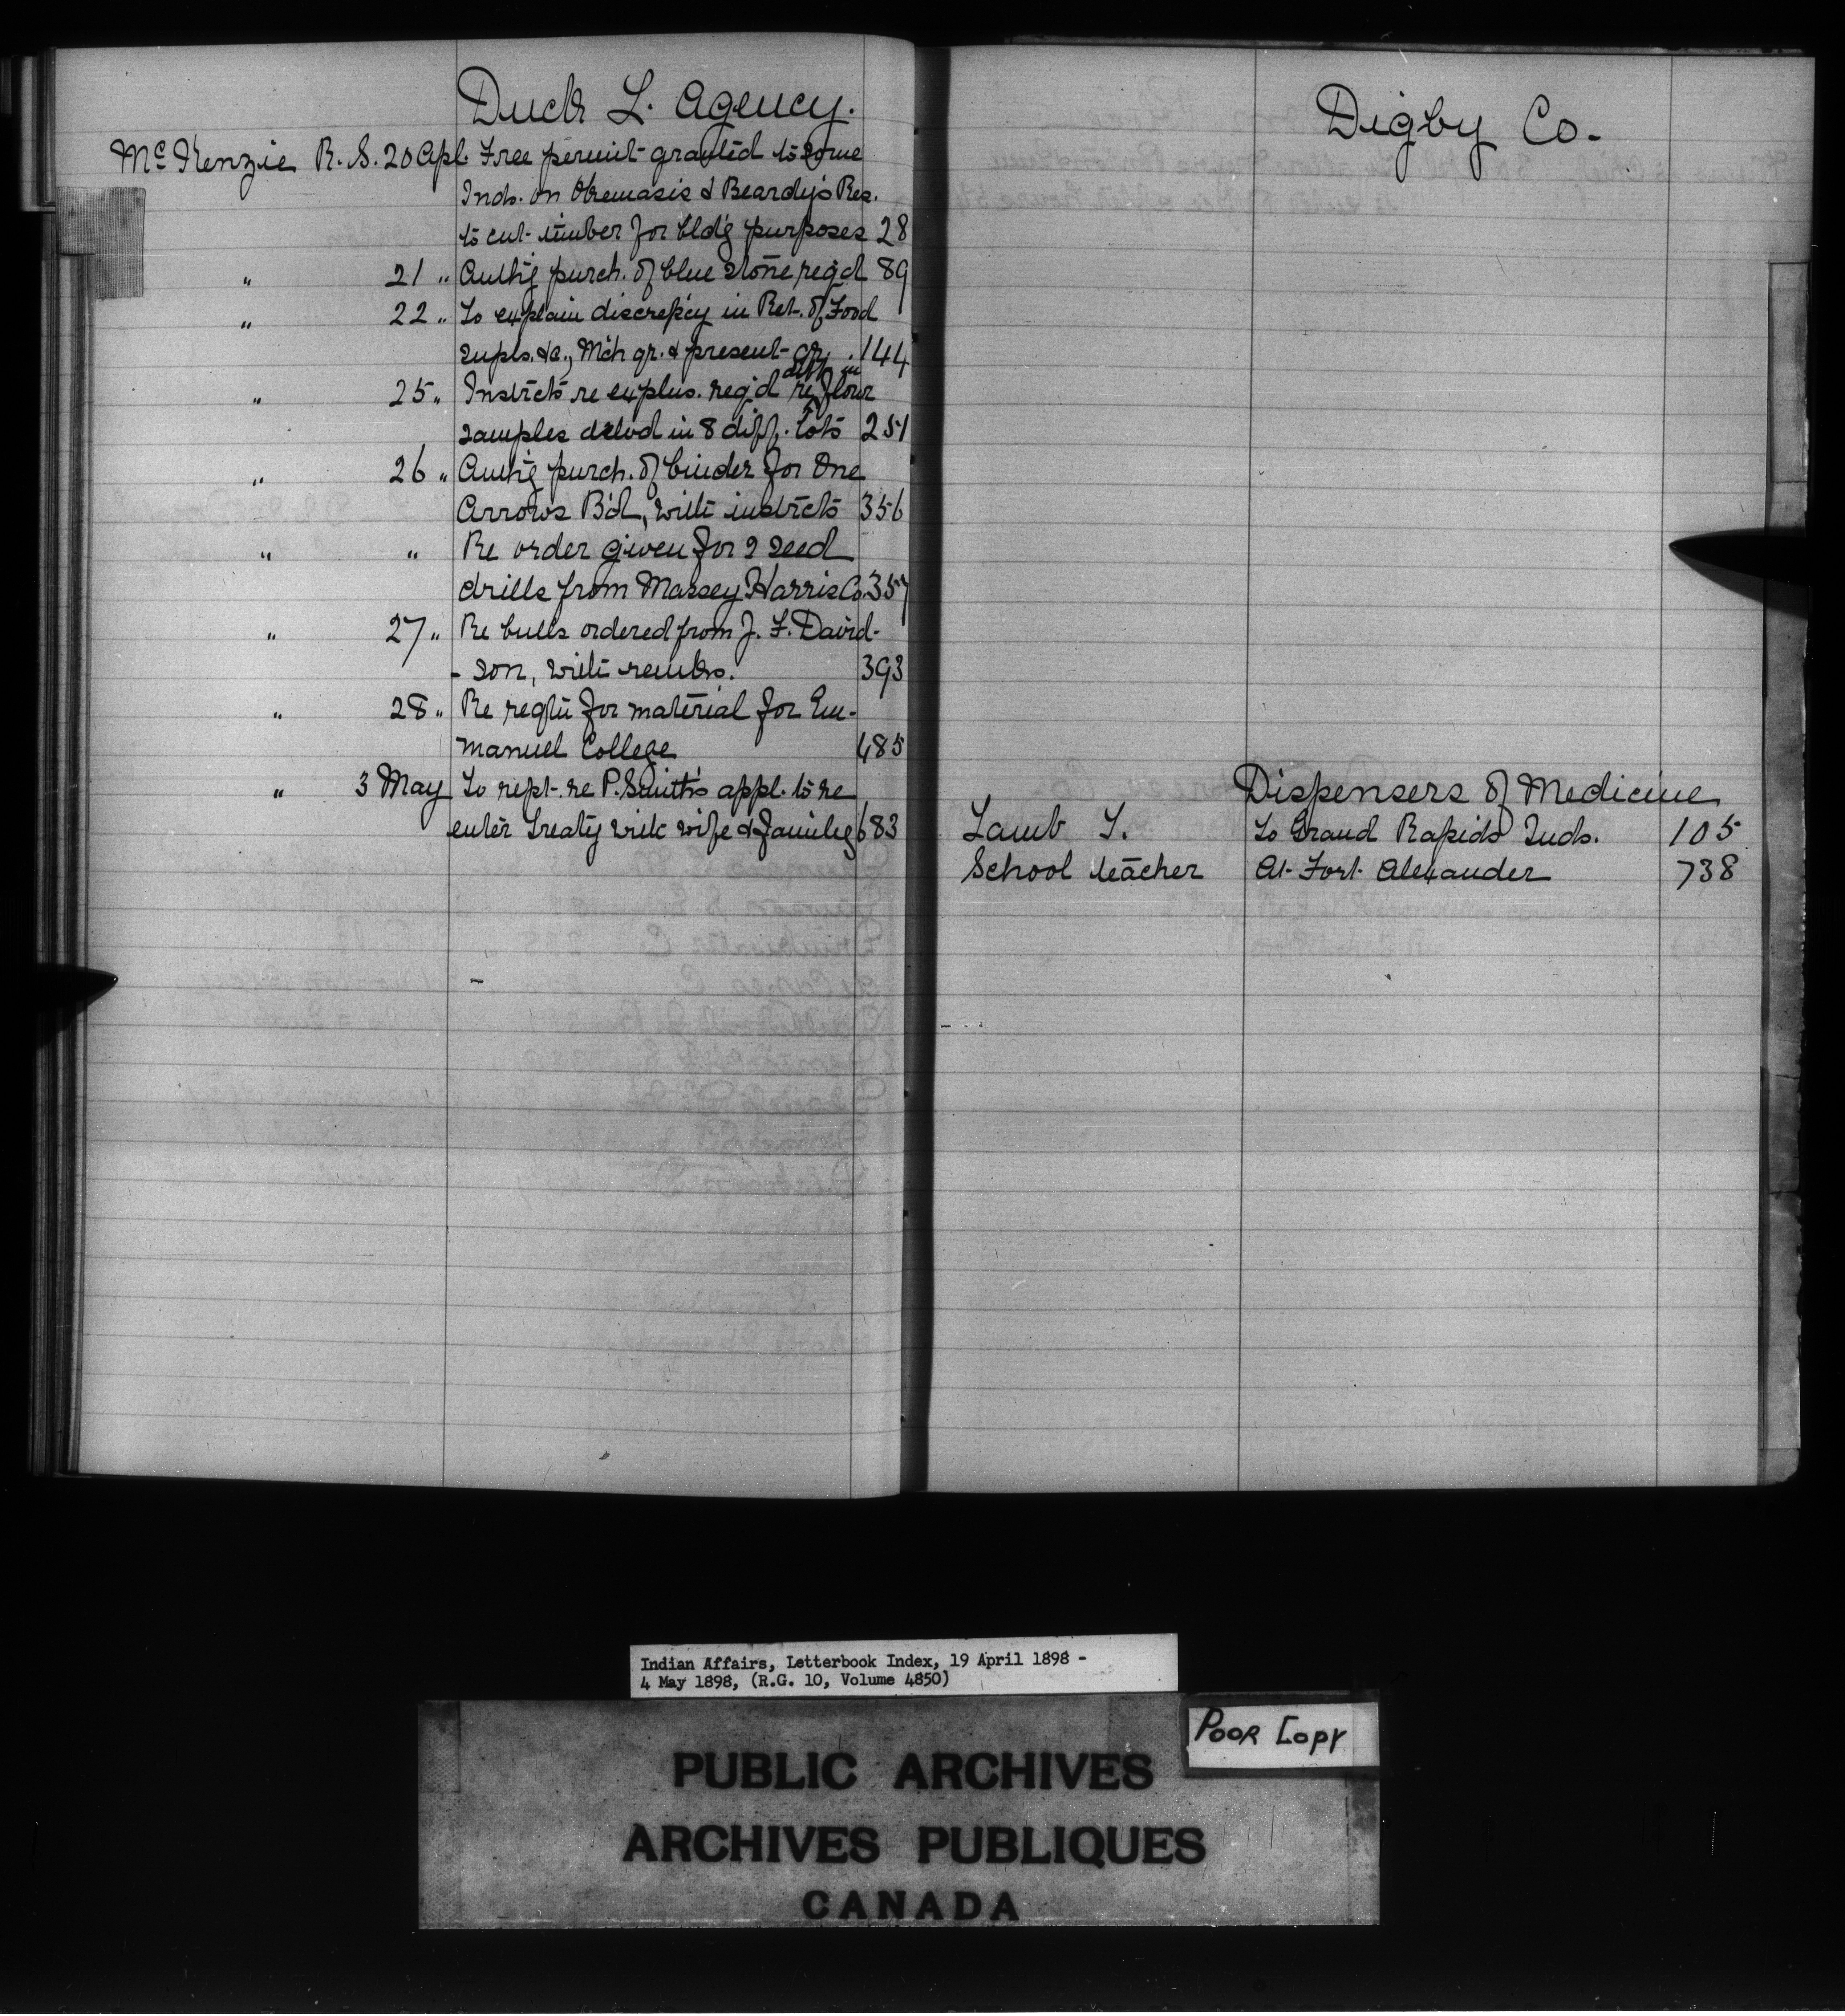 Duck L. Agency.
McKenzie R. S. 20 Apl. Free permit granted to some
Inds. on Okemasis & Beardy's Res.
to cut timber for bldg purposes 28
" 21 " Authg purch. of blue stone reqd 89
" 22 " To explain discrepcy in Ret. of Food
supls. &c., Mch qr. & present qr. 144
diff in
" 25 " Instrcts re explns. reqd re flour
samples delvd in 8 diff. lots 251
" 26 " Authg purch. of binder for One
Arrows Bd, with instrcts 356
" " Re order given for 2 seed
drills from Massey Harris Co. 357
" 27 " Re bulls ordered from J. F. David-
- son, with remks. 393
" 28 " Re reqtn for material for Em-
manuel College 485
" 3 May To rept. re P. Smith's appl. to re
enter Treaty with wife & family 683
Digby Co.
Dispensers of Medicine
Lamb T. To Grand Rapids Inds. 105
School teacher At Fort Alexander 738
Indian Affairs, Letterbook Index, 19 April 1898 -
4 May 1898, (R.G. 10, Volume 4850)
POOR COPY
PUBLIC ARCHIVES
ARCHIVES PUBLIQUES
CANADA